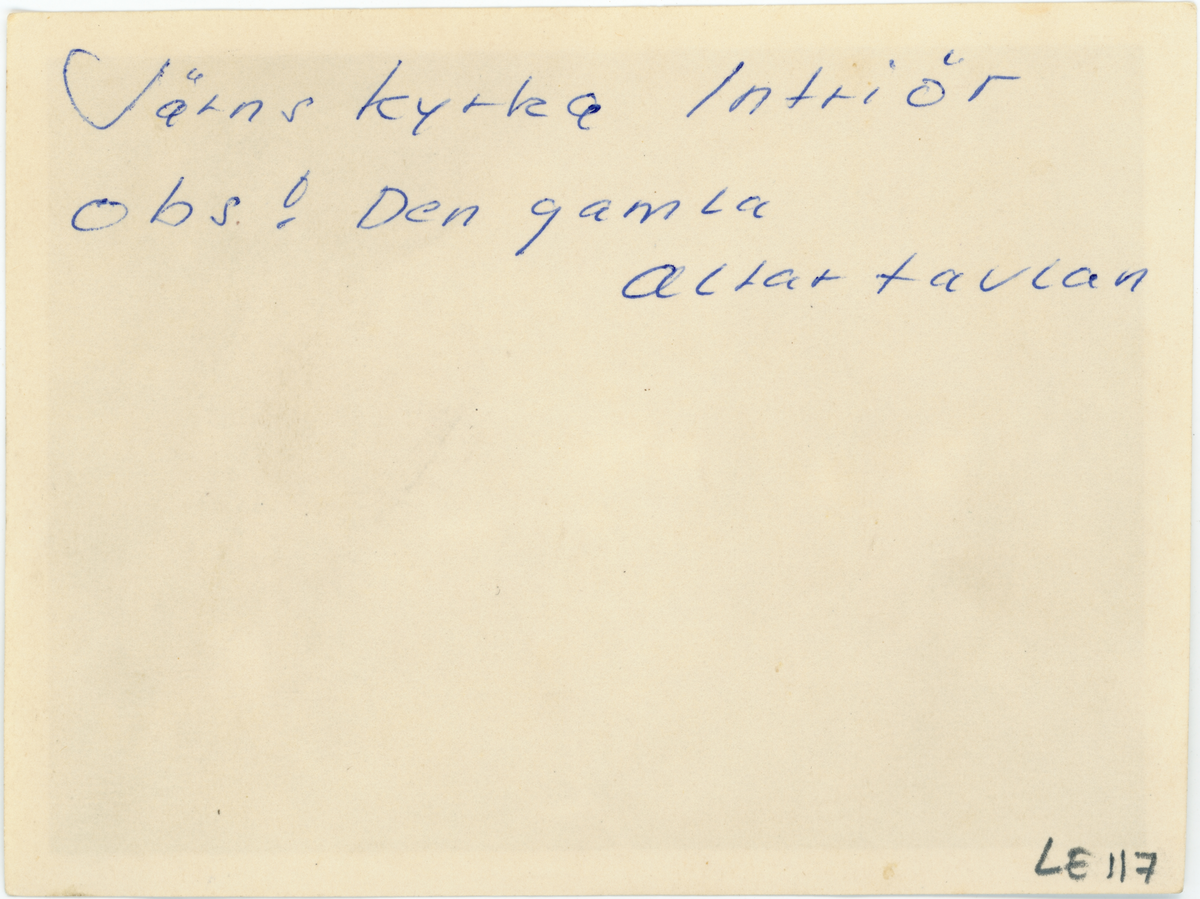 Värns kyrka Intriör
obs! Den gamla
altartavlan
LE 117